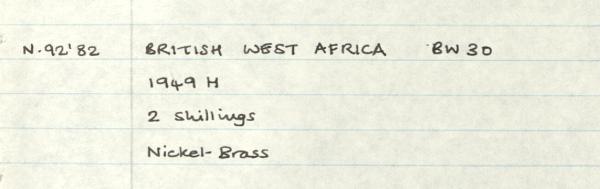 N.92'82 BRITISH WEST AFRICA BW 30
1949 H
2 shillings
Nickel-Brass